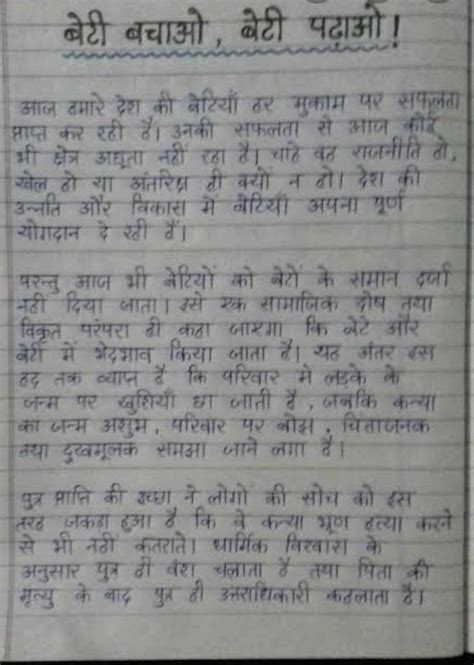 बेटी बचाओ, बेटी पढ़ाओ!
आज हमारे देश की बेटियाँ हर मुकाम पर सफलता
प्राप्त कर रही हैं। उनकी सफलता से आज कोई
भी क्षेत्र अछूता नहीं रहा है। चाहे वह राजनीति हो,
खेल हो या अंतरिक्ष ही क्यों न हो। देश की
उन्नति और विकास में बेटियाँ अपना पूर्ण
योगदान दे रही हैं।
परन्तु आज भी बेटियों को बेटों के समान दर्जा
नहीं दिया जाता। इसे एक सामाजिक दोष तथा
विकृत परंपरा ही कहा जाएगा कि बेटे और
बेटी में भेदभाव किया जाता है। यह अंतर इस
हद तक व्याप्त है कि परिवार में लड़के के
जन्म पर खुशियाँ छा जाती है, जबकि कन्या
का जन्म अशुभ, परिवार पर बोझ, चिंताजनक
तथा दुखमूलक समझा जाने लगा है।
पुत्र प्राप्ति की इच्छा ने लोगों की सोच को इस
तरह जकड़ा हुआ है कि वे कन्या भ्रूण हत्या करने
से भी नहीं कतराते। धार्मिक विश्वास के
अनुसार पुत्र ही वंश चलाता है तथा पिता की
मृत्यु के बाद पुत्र ही उत्तराधिकारी कहलाता है।